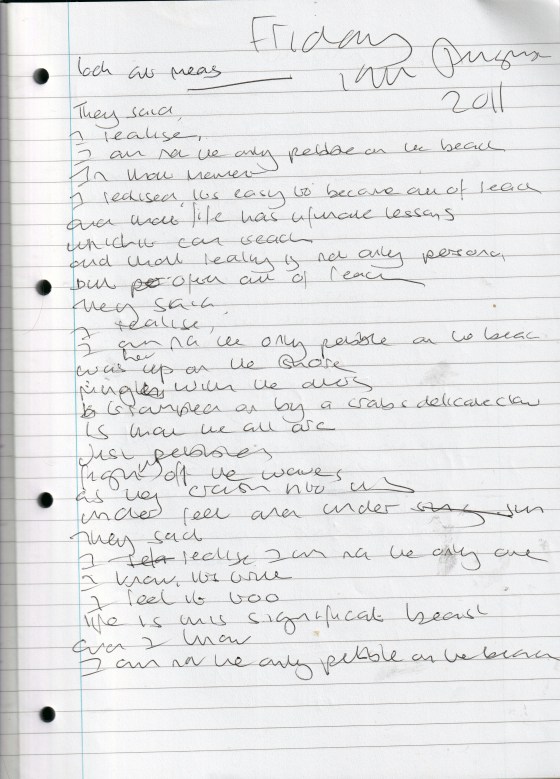 Friday
August
2011
They said,
I realise,
I am not the only pebble on the beach
In that manner
I realised, its easy to become out of reach
and that life has ultimate lessons
which it can teach
and that reality is not only personal
but often out of reach
They said
I realise,
I am not the only pebble on the beach
was up on the shore
with the others
trampled on by a crabs delicate claw
Is that we all are
Just pebbles
fight off the waves
as they crash into us
under feet and under sun
They said
I realise I am not the only one
I know, its true
I feel it too
life is this significant beast
and I know
I am not the only pebble on the beach